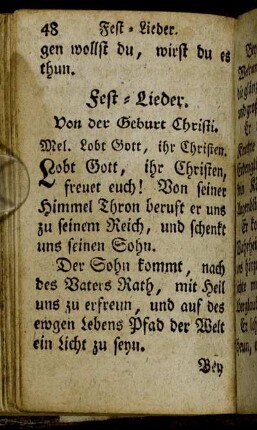 48 Fest-Lieder.
gen wollst du, wirst du es
thun.
Fest-Lieder.
Von der Geburt Christi.
Mel. Lobt Gott, ihr Christen.
Lobt Gott, ihr Christen,
freuet euch! Von seiner
Himmel Thron beruft er uns
zu seinem Reich, und schenkt
uns seinen Sohn.
Der Sohn kommt, nach
des Vaters Rath, mit Heil
uns zu erfreun, und auf des
ewgen Lebens Pfad der Welt
ein Licht zu seyn.
Bey